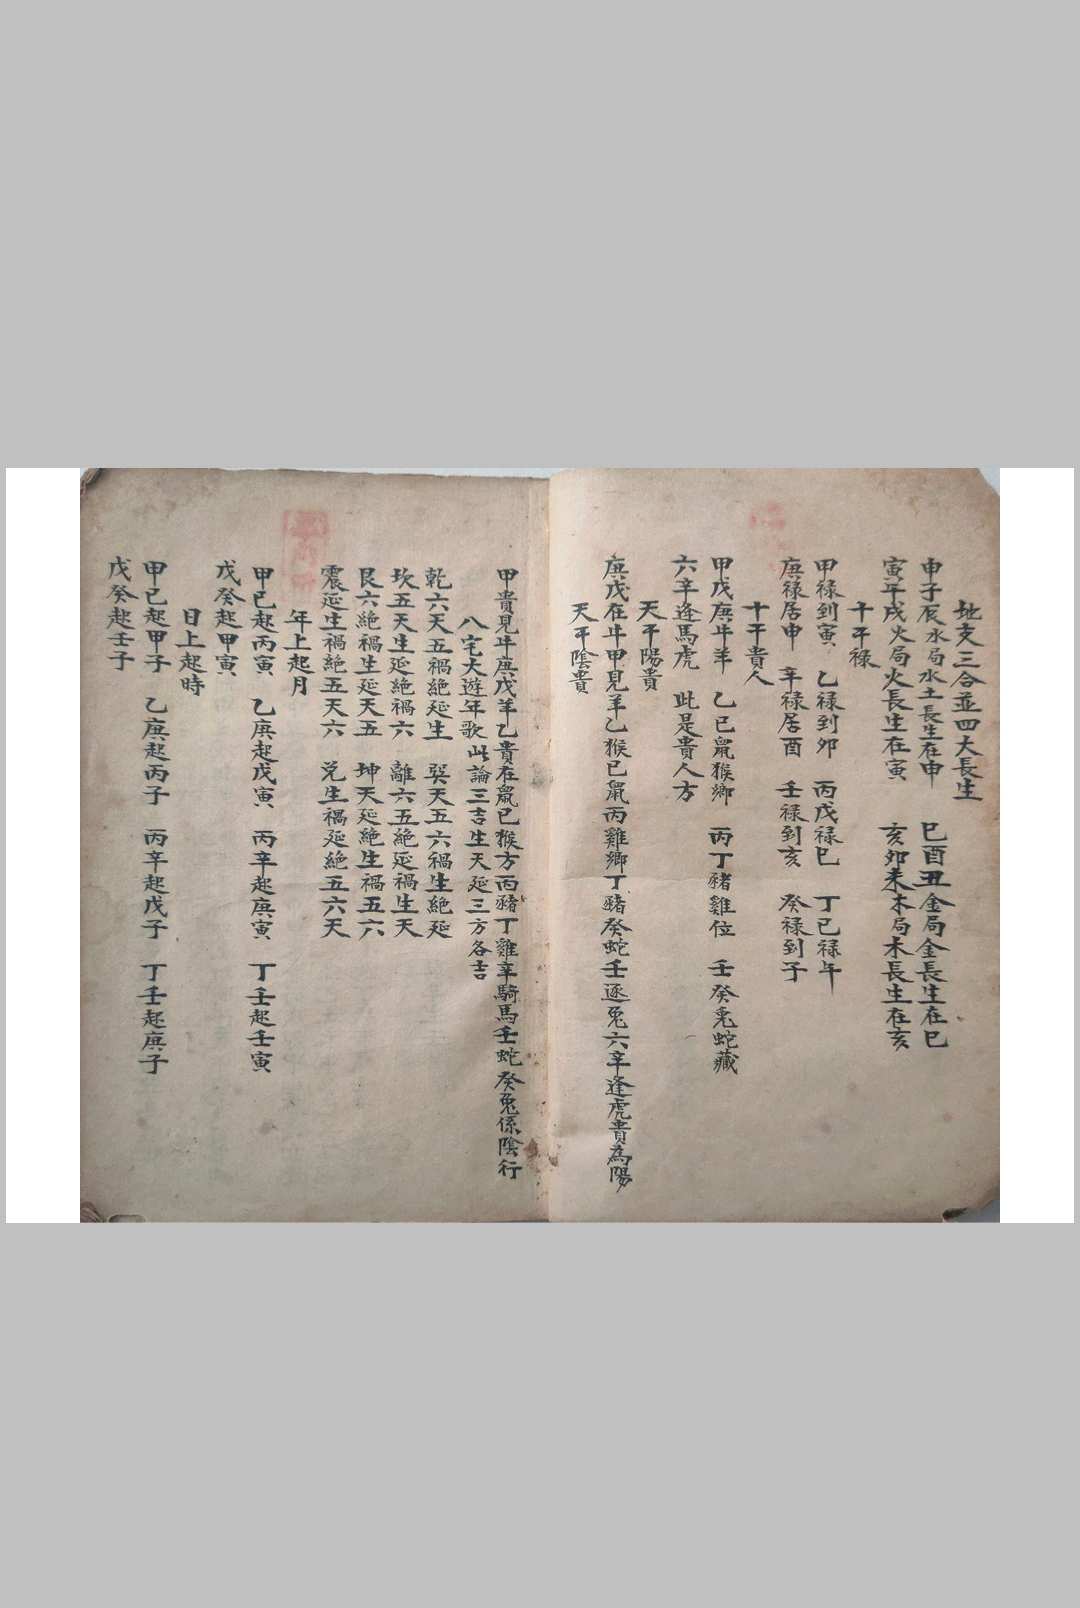 地支三合並四大長生
申子辰水局水土長生在申　巳酉丑金局金長生在巳
寅午戌火局火長生在寅　亥卯未木局木長生在亥
十干祿
甲禄到寅　乙禄到卯　丙戊禄巳　丁己禄午
庚禄居申　辛禄居酉　壬禄到亥　癸禄到子
十干貴人
甲戊庚牛羊　乙己鼠猴鄉　丙丁豬雞位　壬癸兎蛇藏
六辛逢馬虎　此是貴人方
天干陽貴
庚戊在牛甲見羊乙猴己鼠丙雞鄉丁豬癸蛇壬逐兎六辛逢虎貴為陽
天干陰貴
甲貴見牛庚戊羊乙貴在鼠己猴方丙豬丁雞辛騎馬壬蛇癸兎係陰行
八宅大遊年歌此論三吉生天延三方各吉
乾六天五禍絶延生　巽天五六禍生絶延
坎五天生延絶禍六　離六五絶延禍生天
艮六絶禍生延天五　坤天延絶生禍五六
震延生禍絶五天六　兌生禍延絶五六天
年上起月
甲己起丙寅　乙庚起戊寅　丙辛起庚寅　丁壬起壬寅
戊癸起甲寅
日上起時
甲己起甲子　乙庚起丙子　丙辛起戊子　丁壬起庚子
戊癸起壬子